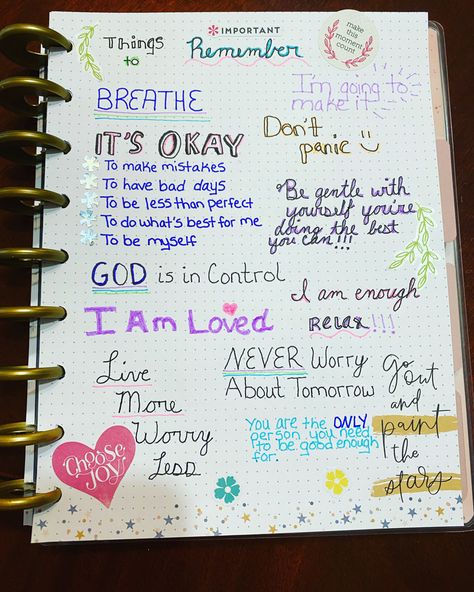 IMPORTANT
Things
to
Remember
make
this
moment
count
I'm going to
make it
BREATHE
Don't
panic
IT'S OKAY
To make mistakes
To have bad days
To be less than perfect
To do what's best for me
To be myself
Be gentle with
yourself you're
doing the best
you can!!!
GOD is in Control
I am enough
I Am Loved
RELAX!!!
Live
More
Worry
Less
NEVER Worry
About Tomorrow
You are the ONLY
person you need
to be good enough
for.
Go
out
and
paint
the
stars
Choose
JOY